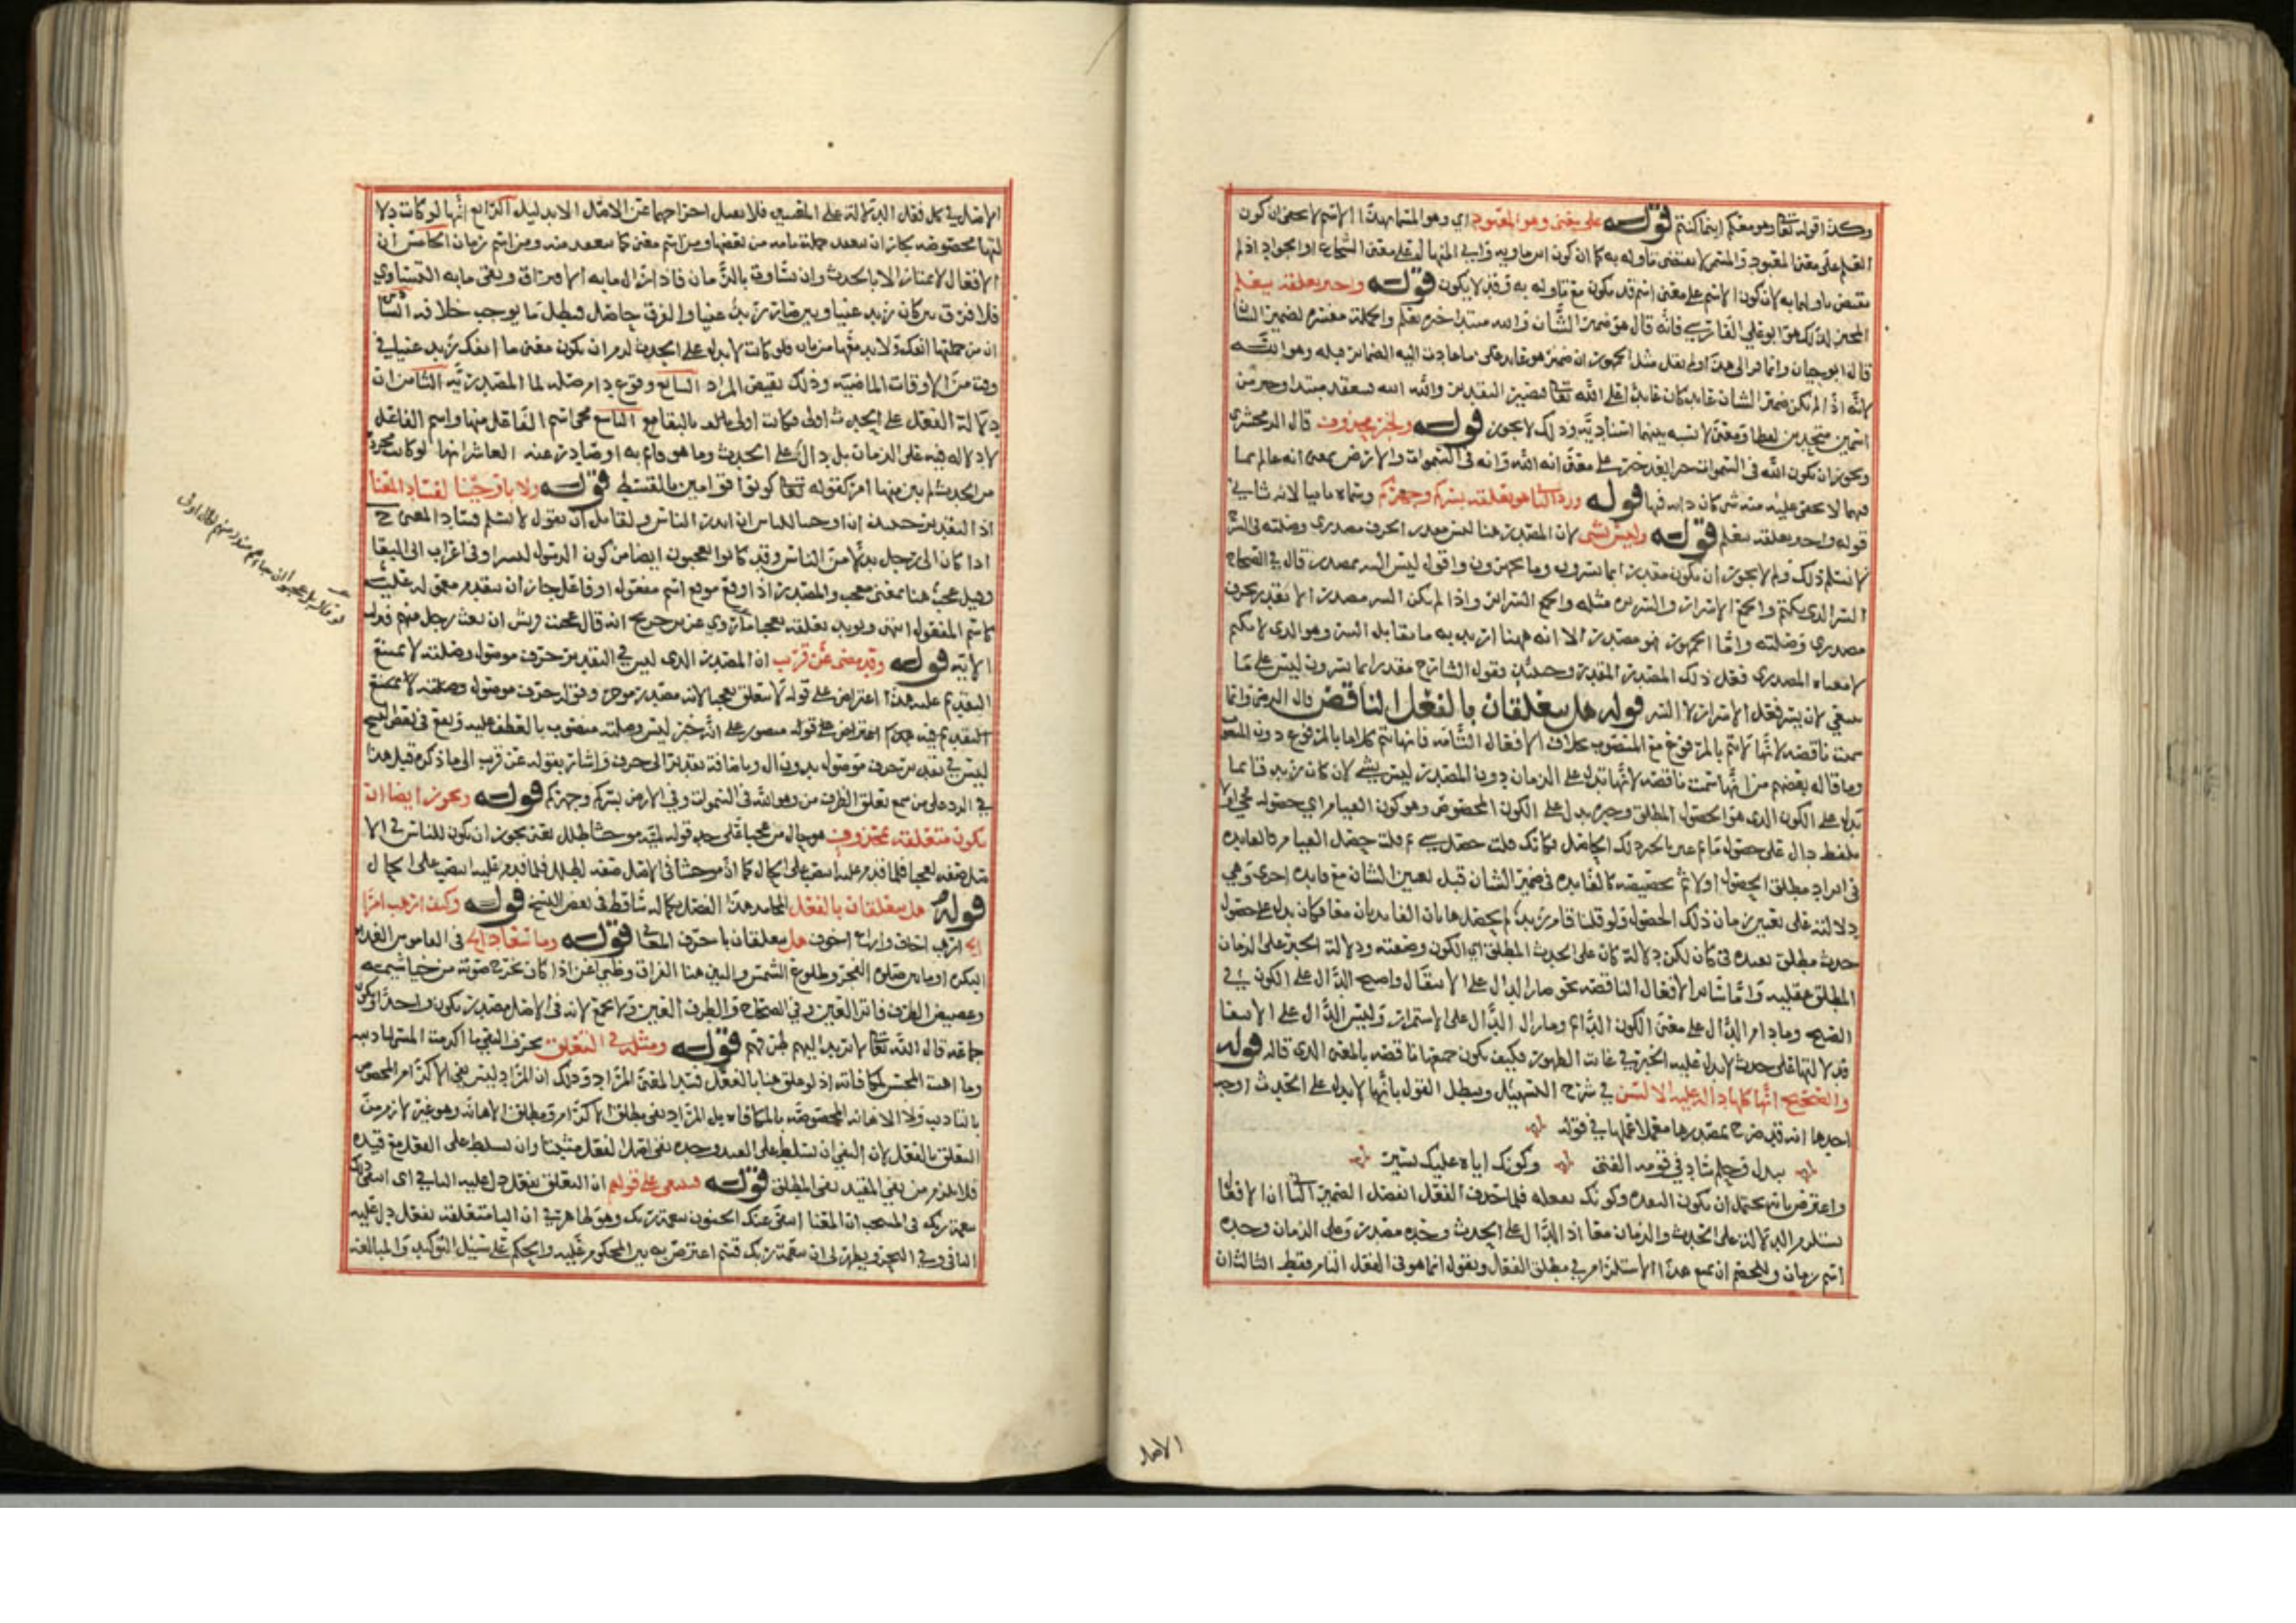 وكذا قوله تعالى وهو معكم اينما كنتم قوله على معنى وهو المعبود اي وهو المسمى بهذا الاسم لا يخفى ان كون
العلم على معنى المعبود والمسمى لا يقتضي تاوله به كما ان كون اسماويه في ابي المنهال على معنى الشجاع او الجواد اذ لم
يقتض تاولهما به لان كون الاسم على معنى اسم قد يكون مع تاوله به وقد لا يكون قوله واجيز تعلقه بيعلم
المجيز لذلك هو ابو علي الفارسي فانه قال هو ضمير الشأن والله مبتدا خبره يعلم والجملة مفسرة لضمير الشان
قال ابو حيان وانما فر الى هذا
لانه اذا لم يكن ضمير الشان كان عائدا على الله تعالى فيصير التقدير والله الله فينعقد مبتدا وخبر من
اسمين متحدين لفظا ومعنى لا نسبة بينهما اسنادية وذلك لا يجوز قوله والخبر محذوف قال الزمخشري
ويجوز ان يكون الله في السموات خبرا بعد خبر على معنى انه الله وانه في السموات والارض بمعنى انه عالم بما
فيهما لا يخفى عليه منه شي كان ذاته فيها قوله ورد الثاني هو تعلقه بسركم وجهركم وسماه ثانيا لانه ثاني
قوله واجيز تعلقه بيعلم قوله وليس بشي لان المقدر هنا ليس بمقدر الحرف مصدري وصلته في الشر
لا نسلم ذلك ولم لا يجوز ان يكون مقدرا بما تسرون وما تجهرون واقول ليس السر بمصدر قال في الصحاح
السر الذي يكتم والجمع الاسرار والسريره مثله والجمع السرائر واذا لم يكن السر مصدرا لا يقدر بحرف
مصدري وصلته واما الجهر فهو مصدر الا انه ههنا اريد به ما يقابل السر وهو الذي لا يكتم
لا معناه المصدري فعلى ذلك المصدر المقدر وحينئذ وقول الشارح مقدرا بما تسرون ليس على ما
ينبغي لان يسر فعل الاسرار لا السر قوله هل يتعلقان بالفعل الناقص قال الرضى وانما
سميت ناقصة لانها لا تتم بالمرفوع مع المنصوب بخلاف الافعال التامة فانها تتم كلاما بالمرفوع دون المنصوب
وما قاله بعضهم من انها سميت ناقصة لانها تدل على الزمان دون المصدر ليس بشي لان كان زيد قائما
يدل على الكون الذي هو الحصول المطلق وخبره يدل على الكون المخصوص وهو كون القيام اي حصوله فجي اولا
بلفظ دال على حصول ما ثم عين بالخبر ذلك الحاصل فكانك قلت حصل شي ثم قلت حصل القيام فالفايدة
في ايراد مطلق الحصول اولا ثم تخصيصه كالفايده في ضمير الشان قبل تعيين الشان مع فايده اخرى وهي
دلالته على تعيين زمان ذلك الحصول ولو قلنا قام زيد لم يحصل هاتان الفايدتان معا فكان يدل على حصول
حدث مطلق تقييده في خبره لكن دلالة كان على الحدث المطلق اي الكون وضعيه ودلالة الخبر على الزمان
المطلق عقليه واما سائر الافعال الناقصه نحو صار الدال على الانتقال واصبح الدال على الكون في
الصبح ومادام الدال على معنى الكون الدائم ومازال الدال على الاستمرار وليس الدال على الانتفا
فدلالتها على حدث لا يدل عليه الخبر في غاية الظهور فكيف تكون جميعها ناقصه بالمعنى الذي قاله قوله
والصحيح انها كلها دالة عليه الا ليس في شرح التسهيل ويبطل القول بانها لا يدل على الحدث اوجه
احدها انه قد صرح بمصدرها معملا عملها في قوله
ببذل وحلم ساد في قومه الفتى وكونك اياه عليك يسير
واعترض بانه يحتمل ان يكون التقدير وكونك تفعله فلما حذف الفعل انفصل الضمير الثاني ان الافعال
يستلزم الدلالة على الحدث والزمان معا اذ الدال على الحدث وحده مصدر وعلى الزمان وحده
اسم زمان وللخصم ان يمنع هذا الاستلزام في مطلق الفعل ويقول انما هو في الفعل التام فقط الثالث ان
الاصل
الاصل في كل فعل الدلالة على المعنيين فلا يقبل اخراجها عن الاصل الا بدليل الرابع انها لو كانت دلا
لتها مخصوصه بجاز ان ينعقد جملة تامة من بعضها ومن اسم معنى كما ينعقد منه ومن اسم زمان الخامس ان
الافعال لا تمتاز الا بالحدث وان تساوت بالزمان فاذا زال ما به الافتراق وبقي ما به التساوي
فلا فرق بين كان زيد غنيا وبين صار زيد غنيا والفرق حاصل فبطل ما يوجب خلافه السادس
ان من جملتها انفك ولا بد معها من ناف فلو كانت لا يدل على الحدث لزم ان يكون معنى ما انفك زيد غنيا في
وقت من الاوقات الماضية وذلك نقيض المراد السابع وقوع دام صلة لما المصدرية الثامن ان
دلالة الفعل على الحدث اولى فكانت اولى بالبقا مع التاسع مجي اسم الفاعل منها واسم الفاعل
لا دلاله فيه على الزمان بل دال على الحدث وما هو قائم به او صادر عنه العاشر انها لو كانت مجردة
من الحدث لم يبن منها امر كقوله تعالى كونوا قوامين بالقسط قوله ولا باوحينا لفساد المعنا
اذ التقدير حينئذ ان اوحينا للناس ان انذر الناس ولقائل ان يقول لا نسلم فساد المعنى ح
اذا كان الى رجل بدلا من الناس وقد كانوا يعجبون ايضا من كون الرسول بشرا وفي اعراب ابي البقا
وقيل عجبا هنا بمعنى معجب والمصدر اذا وقع موقع اسم مفعول او فاعل جاز ان يتقدم معموله عليه
كاسم المفعول انتهى ويويد تعلقه بعجبا ما روي عن ابن جريج انه قال عجبت قريش ان بعث رجل منهم فنزلت
الاية قوله وقد مضى عن قريب ان المصدر الذي ليس في التقدير حرف موصول وصلته لا يمتنع
التقديم عليه هذا اعتراض على قوله لا يتعلق بعجبا لانه مصدر موخر وقوله حرف موصول وصلته لا يمتنع
ليس في تقدير حرف موصول بدون ال وباضافة تقدير الى حرف واشار بقوله عن قرب الى ما ذكره قبل هذا
في الرد على من منع تعلق الظرف من وهو الله في السموات وفي الارض بسركم وجهركم قوله ويجوز ايضا ان
يكون متعلقه بمحذوف هو حال من عجبا على حد قوله لمية موحشا طلل يعني يجوز ان يكون للناس في الا
صل صفه لعجبا فلما قدم عليه انتصب على الحال كما ان موحشا في الاصل صفه لطلل فلما قدم عليه انتصب على الحال
قوله هل يتعلقان بالفعل الجامد هذا الفصل بكماله ساقط في بعض النسخ قوله وكيف ارهب امرا
الخ ارهب اخاف واراع اخوف هل يتعلقان باحرف المعاني قوله وما سعاد الخ في القاموس الغداة
البكرة او ما بين صلاه الفجر وطلوع الشمس والبين هنا الفراق وظبي اغن اذا كان يخرج صوته من خياشيمه
وغضيض الطرف فاتر العين وفي الصحاح والطرف العين ولا يجمع لانه في الاصل مصدر يكون واحدا ويكون
جماعه قال الله تعالى لا يرتد اليهم طرفهم قوله ومثله في التعلق بحرف النفي ما اكرمت المسي لتاديبه
وما اهنت المحسن لمكافاته اذ لو علق هنا بالفعل فسد المعنى المراد وذلك ان المراد ليس نفي الاكرام المخصوص
بالتاديب ولا الاهانه المخصوصه بالمكافاه بل المراد نفي مطلق الاكرام ومطلق الاهانه وهو غير لازم من
التعلق بالفعل لان النفي ان تسلط على القيد وحده بقي اصل الفعل مثبتا وان تسلط على الفعل مع قيده
فلا يلزم من نفي المقيد نفي المطلق قوله فينبغي على قولهم ان التعلق بفعل دل عليه النافي اي انتفى ذلك
بنعمة ربك في المنتخب ان المعنا انتفى عنك الجنون بنعمة ربك وهو ظاهر في ان البا متعلقه بفعل دل عليه
النافي وفي البحر ويظهر لي ان بنعمة ربك قسم اعترض به بين المحكوم عليه والحكم على سبيل التوكيد والمبالغة